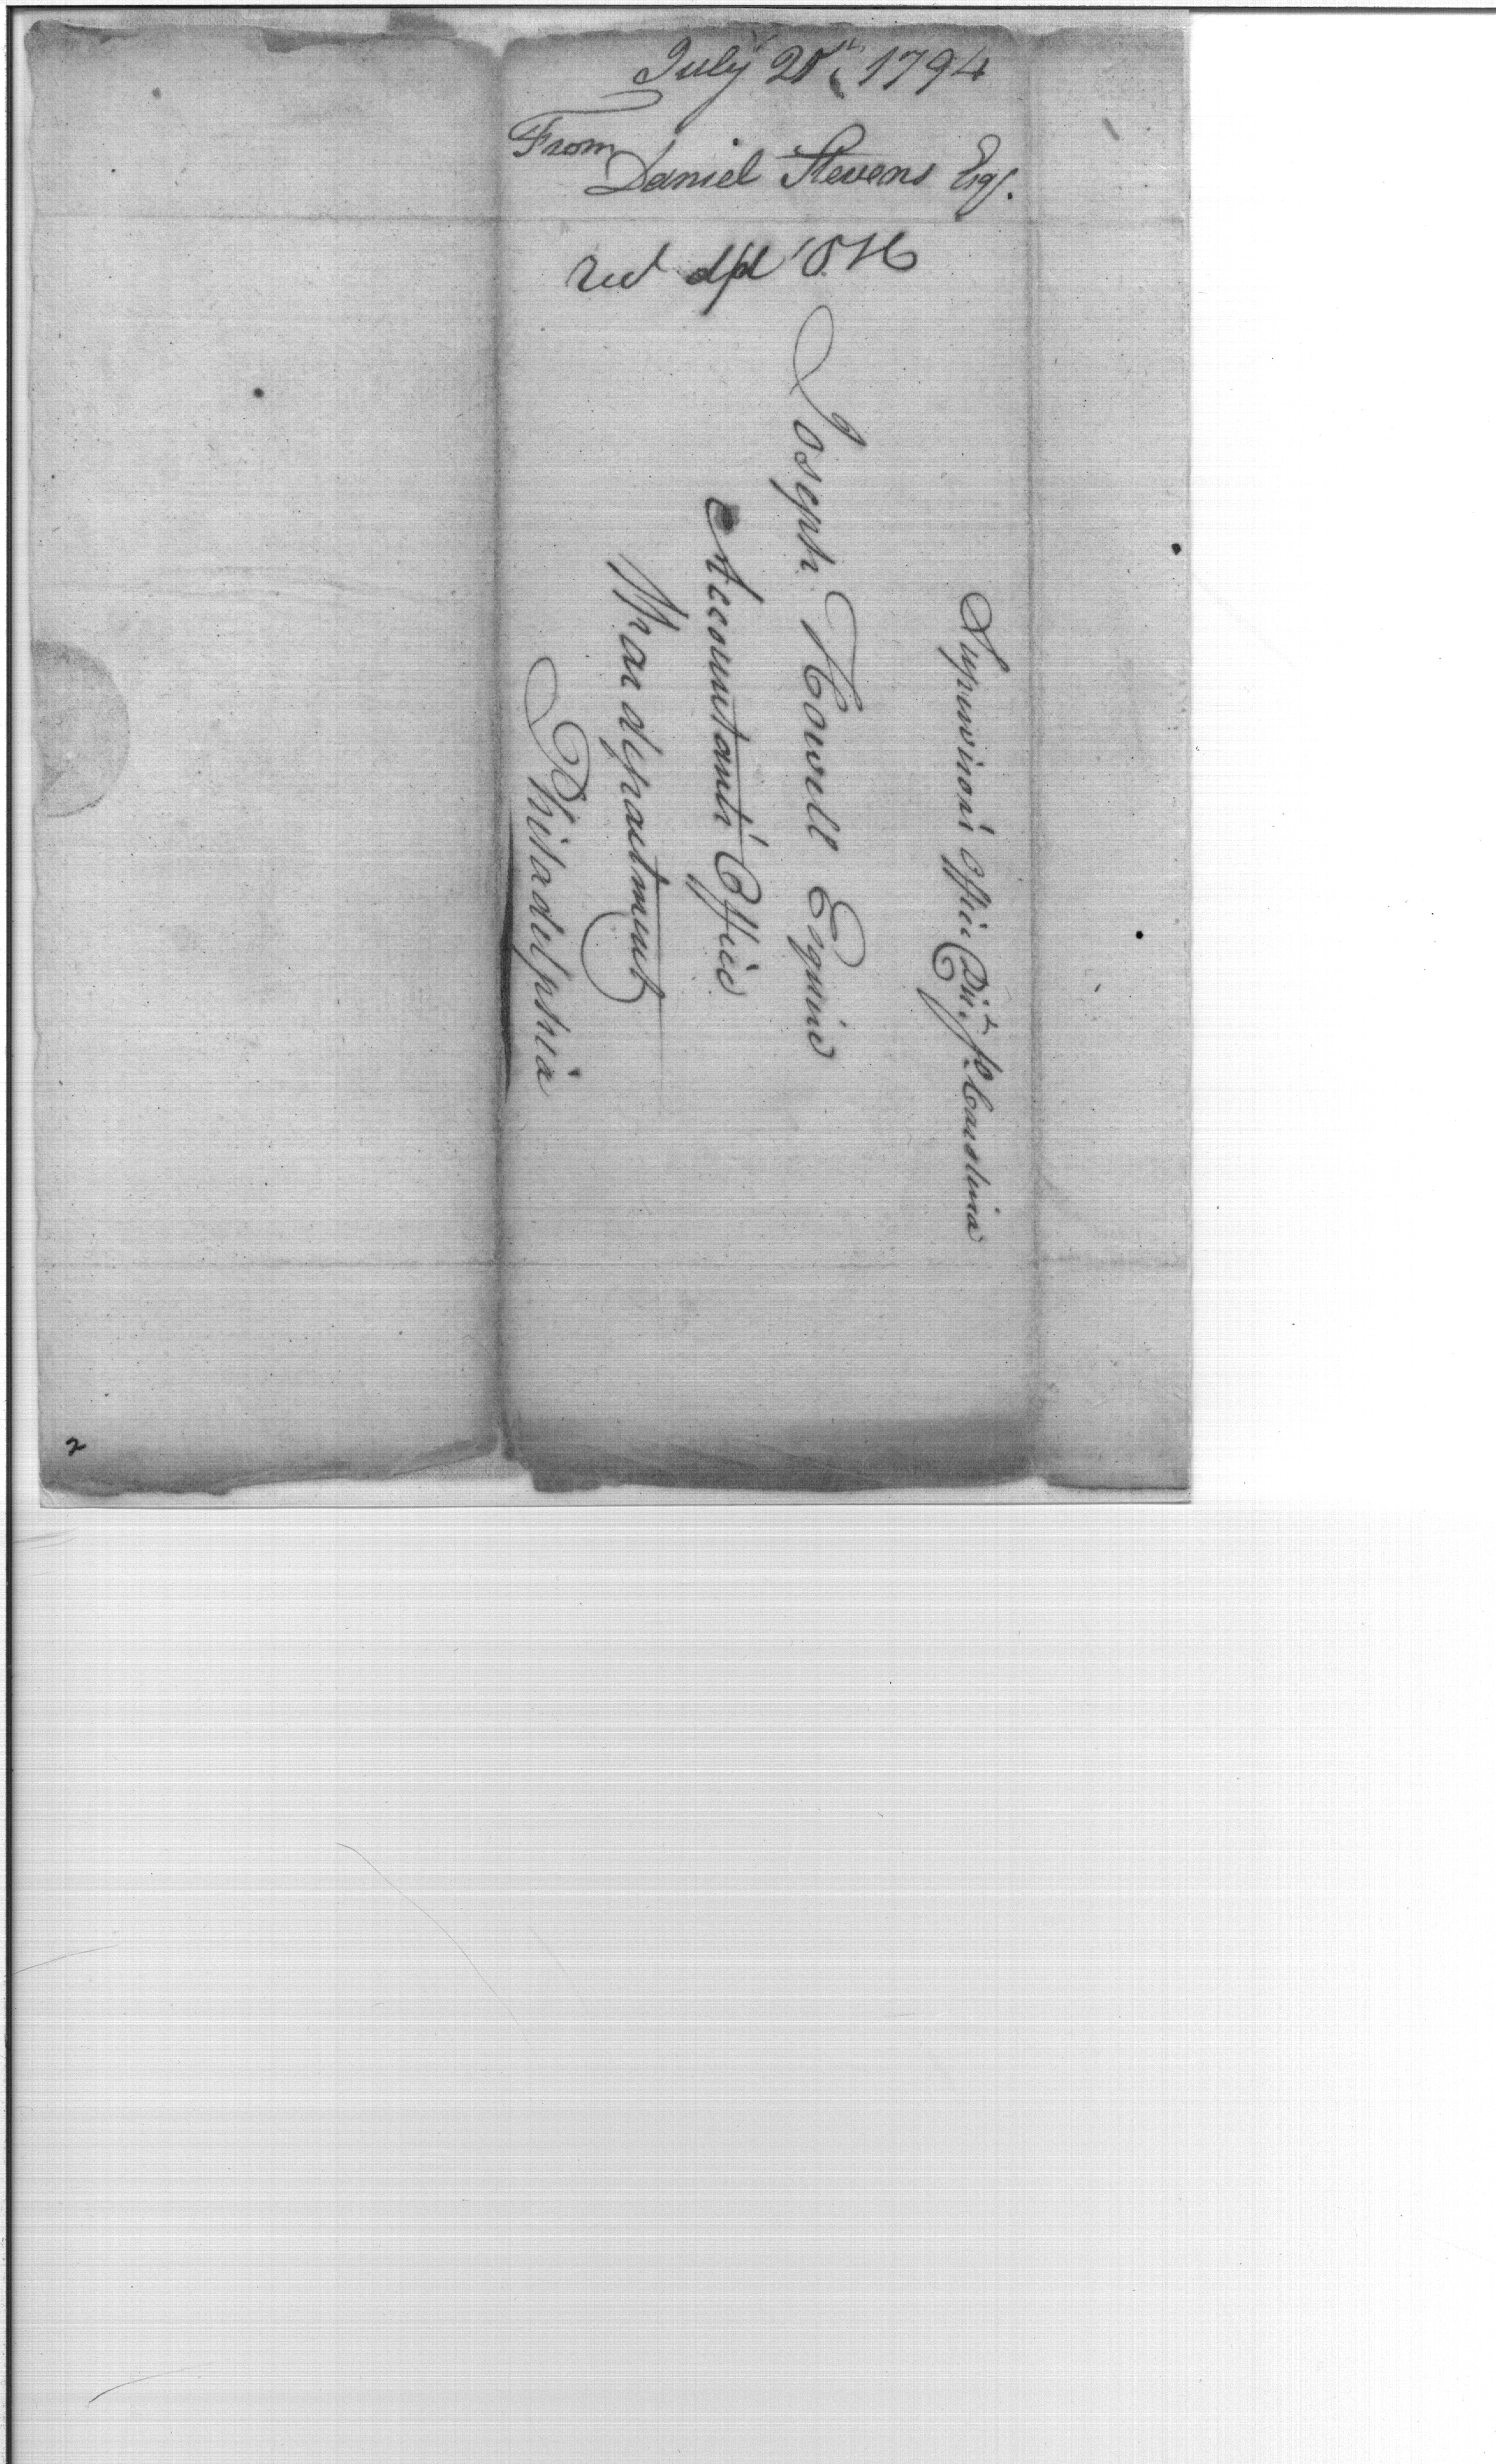 July 21st 1794
From
Daniel Stevens Esqr.
Supervisors Office Dist. So. Carolina
Joseph Howell Esquire
Accountants Office
War department
Philadelphia
2